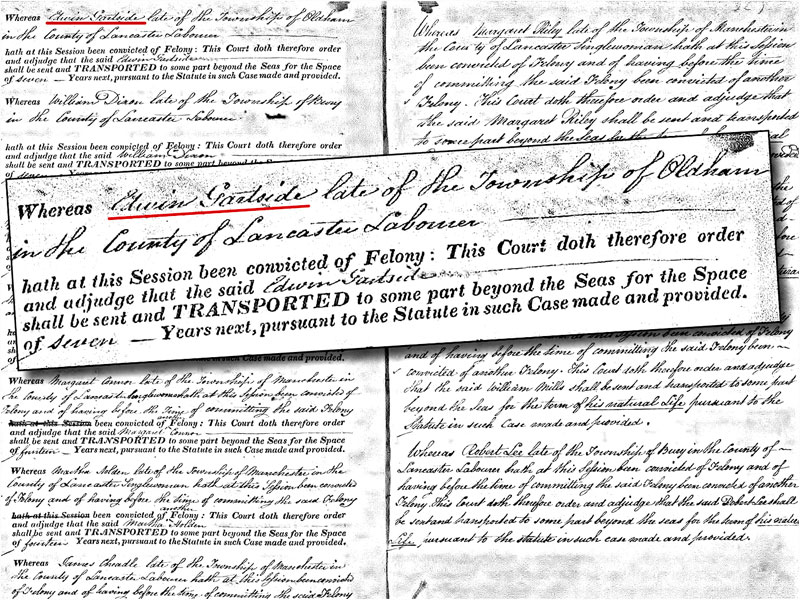 Whereas Edwin Gartside late of the Township of Oldham
in the County of Lancaster Labourer
hath at this Session been convicted of Felony: This Court doth therefore order
and adjudge that the said Edwin Gartside
shall be sent and TRANSPORTED to some part beyond the Seas for the Space
of seven — Years next, pursuant to the Statute in such Case made and provided.
Whereas William Dixon late of the Township of
in the County of Lancaster Labourer
hath at this Session been convicted of Felony: This Court doth therefore order
and adjudge that the said William Dixon
shall be sent and TRANSPORTED to some part beyond the Seas
of seven
Whereas Edwin Gartside late of the Township of Oldham
in the County of Lancaster Labourer
hath at this Session been convicted of Felony: This Court doth therefore order
and adjudge that the said Edwin Gartside
shall be sent and TRANSPORTED to some part beyond the Seas for the Space
of seven — Years next, pursuant to the Statute in such Case made and provided.
shall be sent and TRANSPORTED to some part beyond the Seas for the Space
Years next, pursuant to the Statute in such Case made and provided.
Whereas Margaret Connor late of the Township of Manchester in
the County of Lancaster Singlewoman hath at this Session been convicted of
Felony and of having before the time of committing the said Felony
another
hath at this Session been convicted of Felony: This Court doth therefore order
and adjudge that the said Margaret Connor
shall be sent and TRANSPORTED to some part beyond the Seas for the Space
of fourteen — Years next, pursuant to the Statute in such Case made and provided.
Whereas Martha Holden late of the Township of Manchester in the
County of Lancaster Singlewoman hath at this Session been convicted
of Felony and of having before the time of committing the said Felony
another
hath at this Session been convicted of Felony: This Court doth therefore order
and adjudge that the said Martha Holden
shall be sent and TRANSPORTED to some part beyond the Seas for the Space
of fourteen — Years next, pursuant to the Statute in such Case made and provided.
Whereas James Cheadle late of the Township of Manchester in
the County of Lancaster Labourer hath at this Session been convicted
of Felony and of having before the time of committing the said Felony
Whereas Margaret Riley late of the Township of Manchester in
the County of Lancaster Singlewoman hath at this Session
been convicted of Felony and of having before the time
of committing the said Felony been convicted of another
Felony. This Court doth therefore order and adjudge that
the said Margaret Riley shall be sent and transported
to some part beyond the Seas for the term of her natural
been convicted of Felony
and of having before the time of committing the said Felony been
convicted of another Felony. This Court doth therefore order and adjudge
that the said William Mills shall be sent and transported to some part
beyond the Seas for the term of his natural Life pursuant to the
Statute in such Case made and provided.
Whereas Robert Lee late of the Township of Bury in the County of
Lancaster Labourer hath at this Session been convicted of Felony and of
having before the time of committing the said Felony been convicted of another
Felony. This Court doth therefore order and adjudge that the said Robert Lee shall
be sent and transported to some part beyond the seas for the term of his natural
Life pursuant to the statute in such case made and provided.